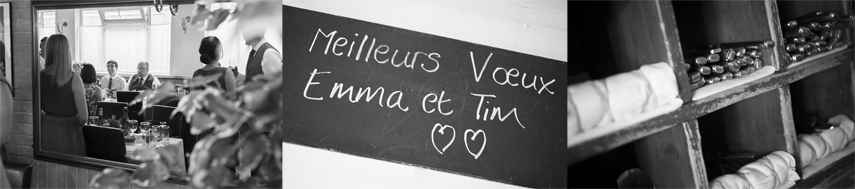 Meilleurs Vœux
Emma et Tim